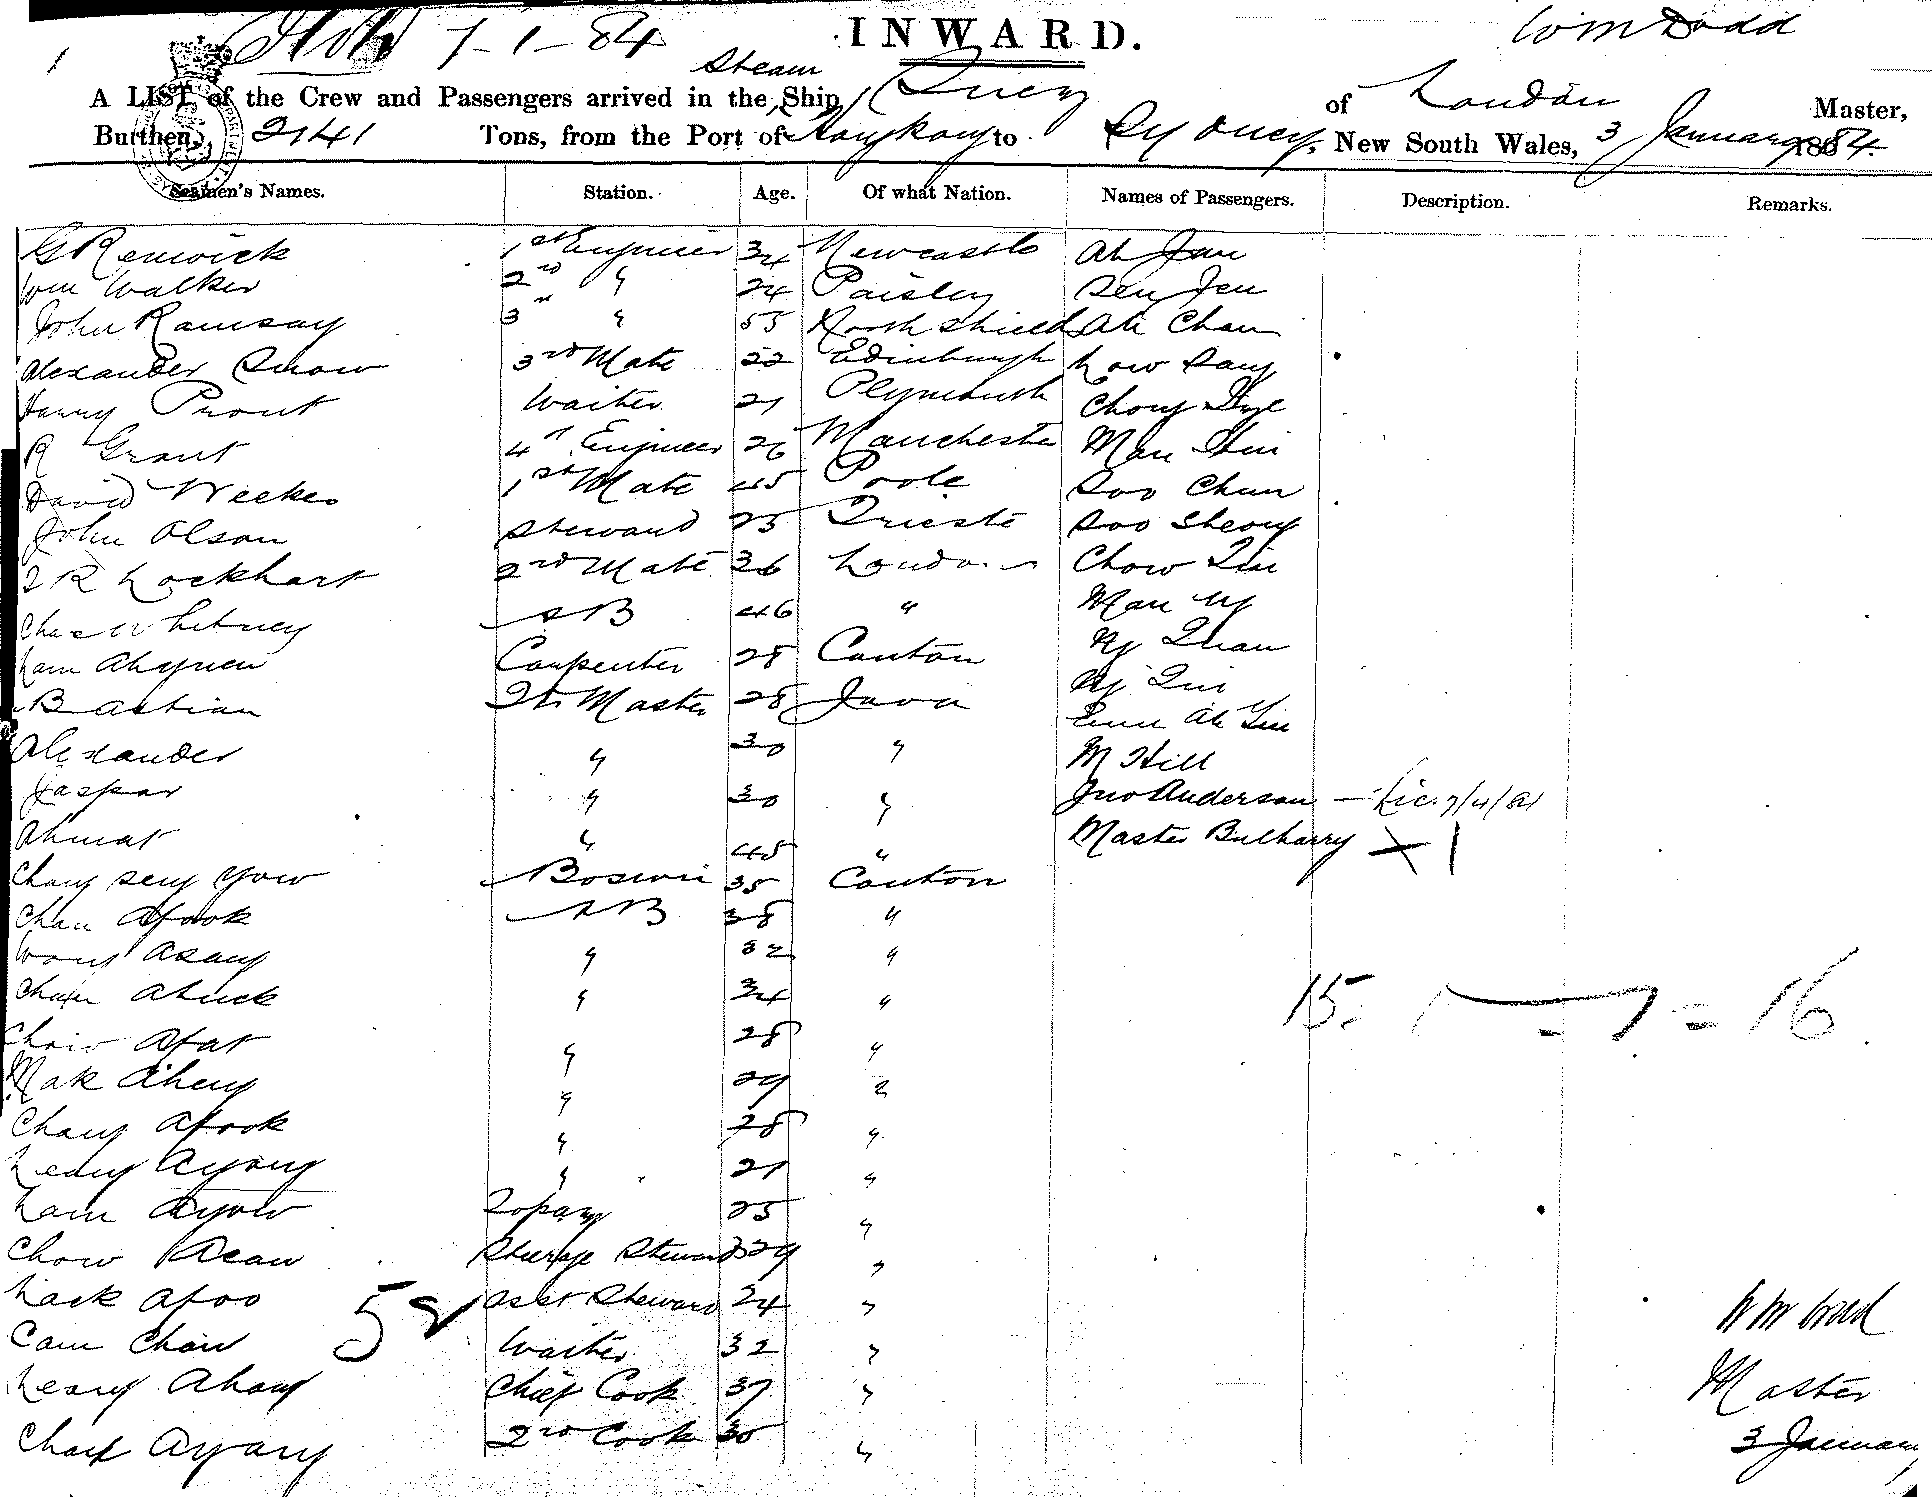 1 7-1-84 INWARD. Wm Dodd
Steam
A LIST of the Crew and Passengers arrived in the Ship of London Master,
Burthen, 2141 Tons, from the Port of Hongkong to Sydney, New South Wales, 3 January 1884.
Seamen's Names. Station. Age. Of what Nation. Names of Passengers. Description. Remarks.
G Renwick 1st Engineer 34 Newcastle Ah Jan
Wm Walker 2nd " 24 Paisley Sen Jen
John Ramsay 3rd " 55 North Shields Ah Chan
Alexander Snow 3rd Mate 22 Edinburgh Low Sang
Harry Prout Waiter 21 Plymouth Chong
R Grant 4th Engineer 26 Manchester Man
David Weekes 1st Mate 45 Poole Soo Chun
John Olson Steward 25 Trieste Soo Sheong
Lockhart 2nd Mate 36 London Chow
Chas Whitney AB 46 " Man Ng
Lam Carpenter 28 Canton Ng
Bastian Qr Master 28 Java Ng
Ah
Alexander " 30 " M Hill
Jaspar " 30 " Jno Anderson — Lic. 7/4/81
Ahmat " 45 " Master X 1
Chang Seng Yow Boswn 35 Canton
Chan Afook AB 38 "
Wong Asang " 32 "
Chan Ahuck " 34 "
15. 1 - 1 = 16
Chow Afat " 28 "
Mak Aheng " 29 "
Chang Afook " 28 "
Leong Ayong " 21 "
Lam Ayow Topaz 25 "
Chow Acan Steerage Steward 29 "
Lack Afoo Asst Steward 24 "
58
Cam Chow Waiter 32 "
Leong Ahong Chief Cook 37 "
Ayang 2nd Cook 30 "
Wm Dodd
Master
3 January